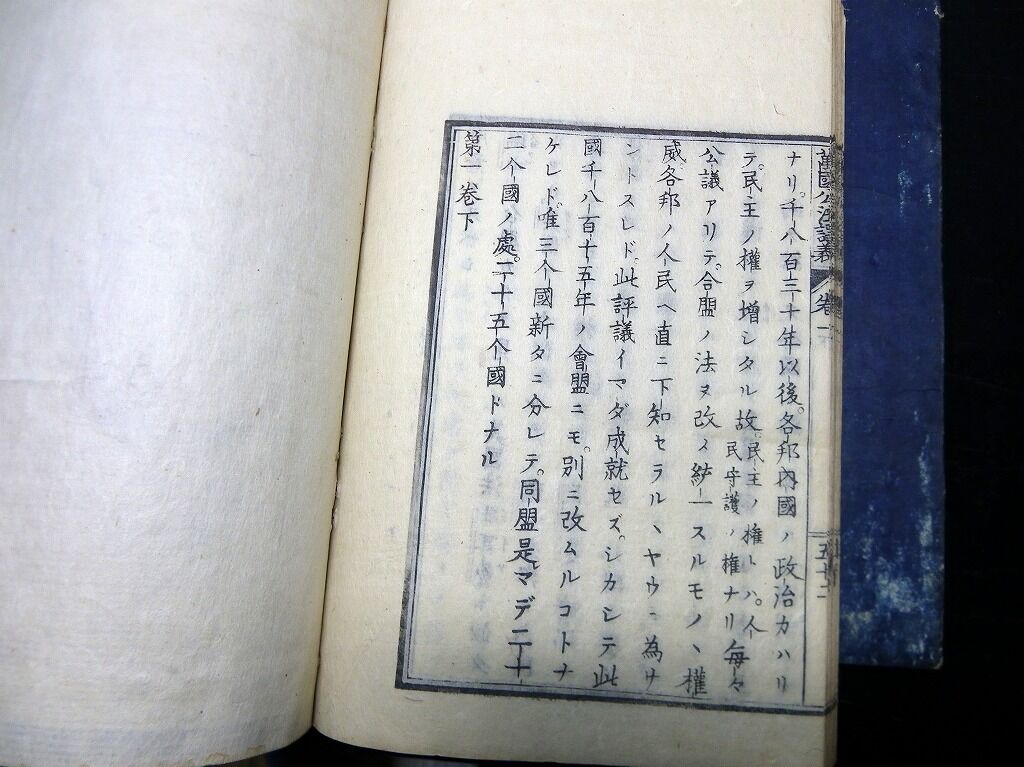 萬國公法講義
卷一
五十二
ナリ。千八百三十年以後。各邦內國ノ政治カハリ
テ。民主ノ權ヲ增シタル故。民主ノ權トハ。人民守護ノ權ナリ每々
公議アリテ。合盟ノ法ヲ改メ統一スルモノヽ權
威各邦ノ人民ヘ直ニ下知セラルヽヤウニ為サ
ントスレド。此評議イマダ成就セズ。シカシテ此
國千八百十五年ノ會盟ニモ。別ニ改ムルコトナ
ケレド。唯三个國新タニ分レテ。同盟是マデ二十
二个國ノ處。二十五个國トナル
第一卷下